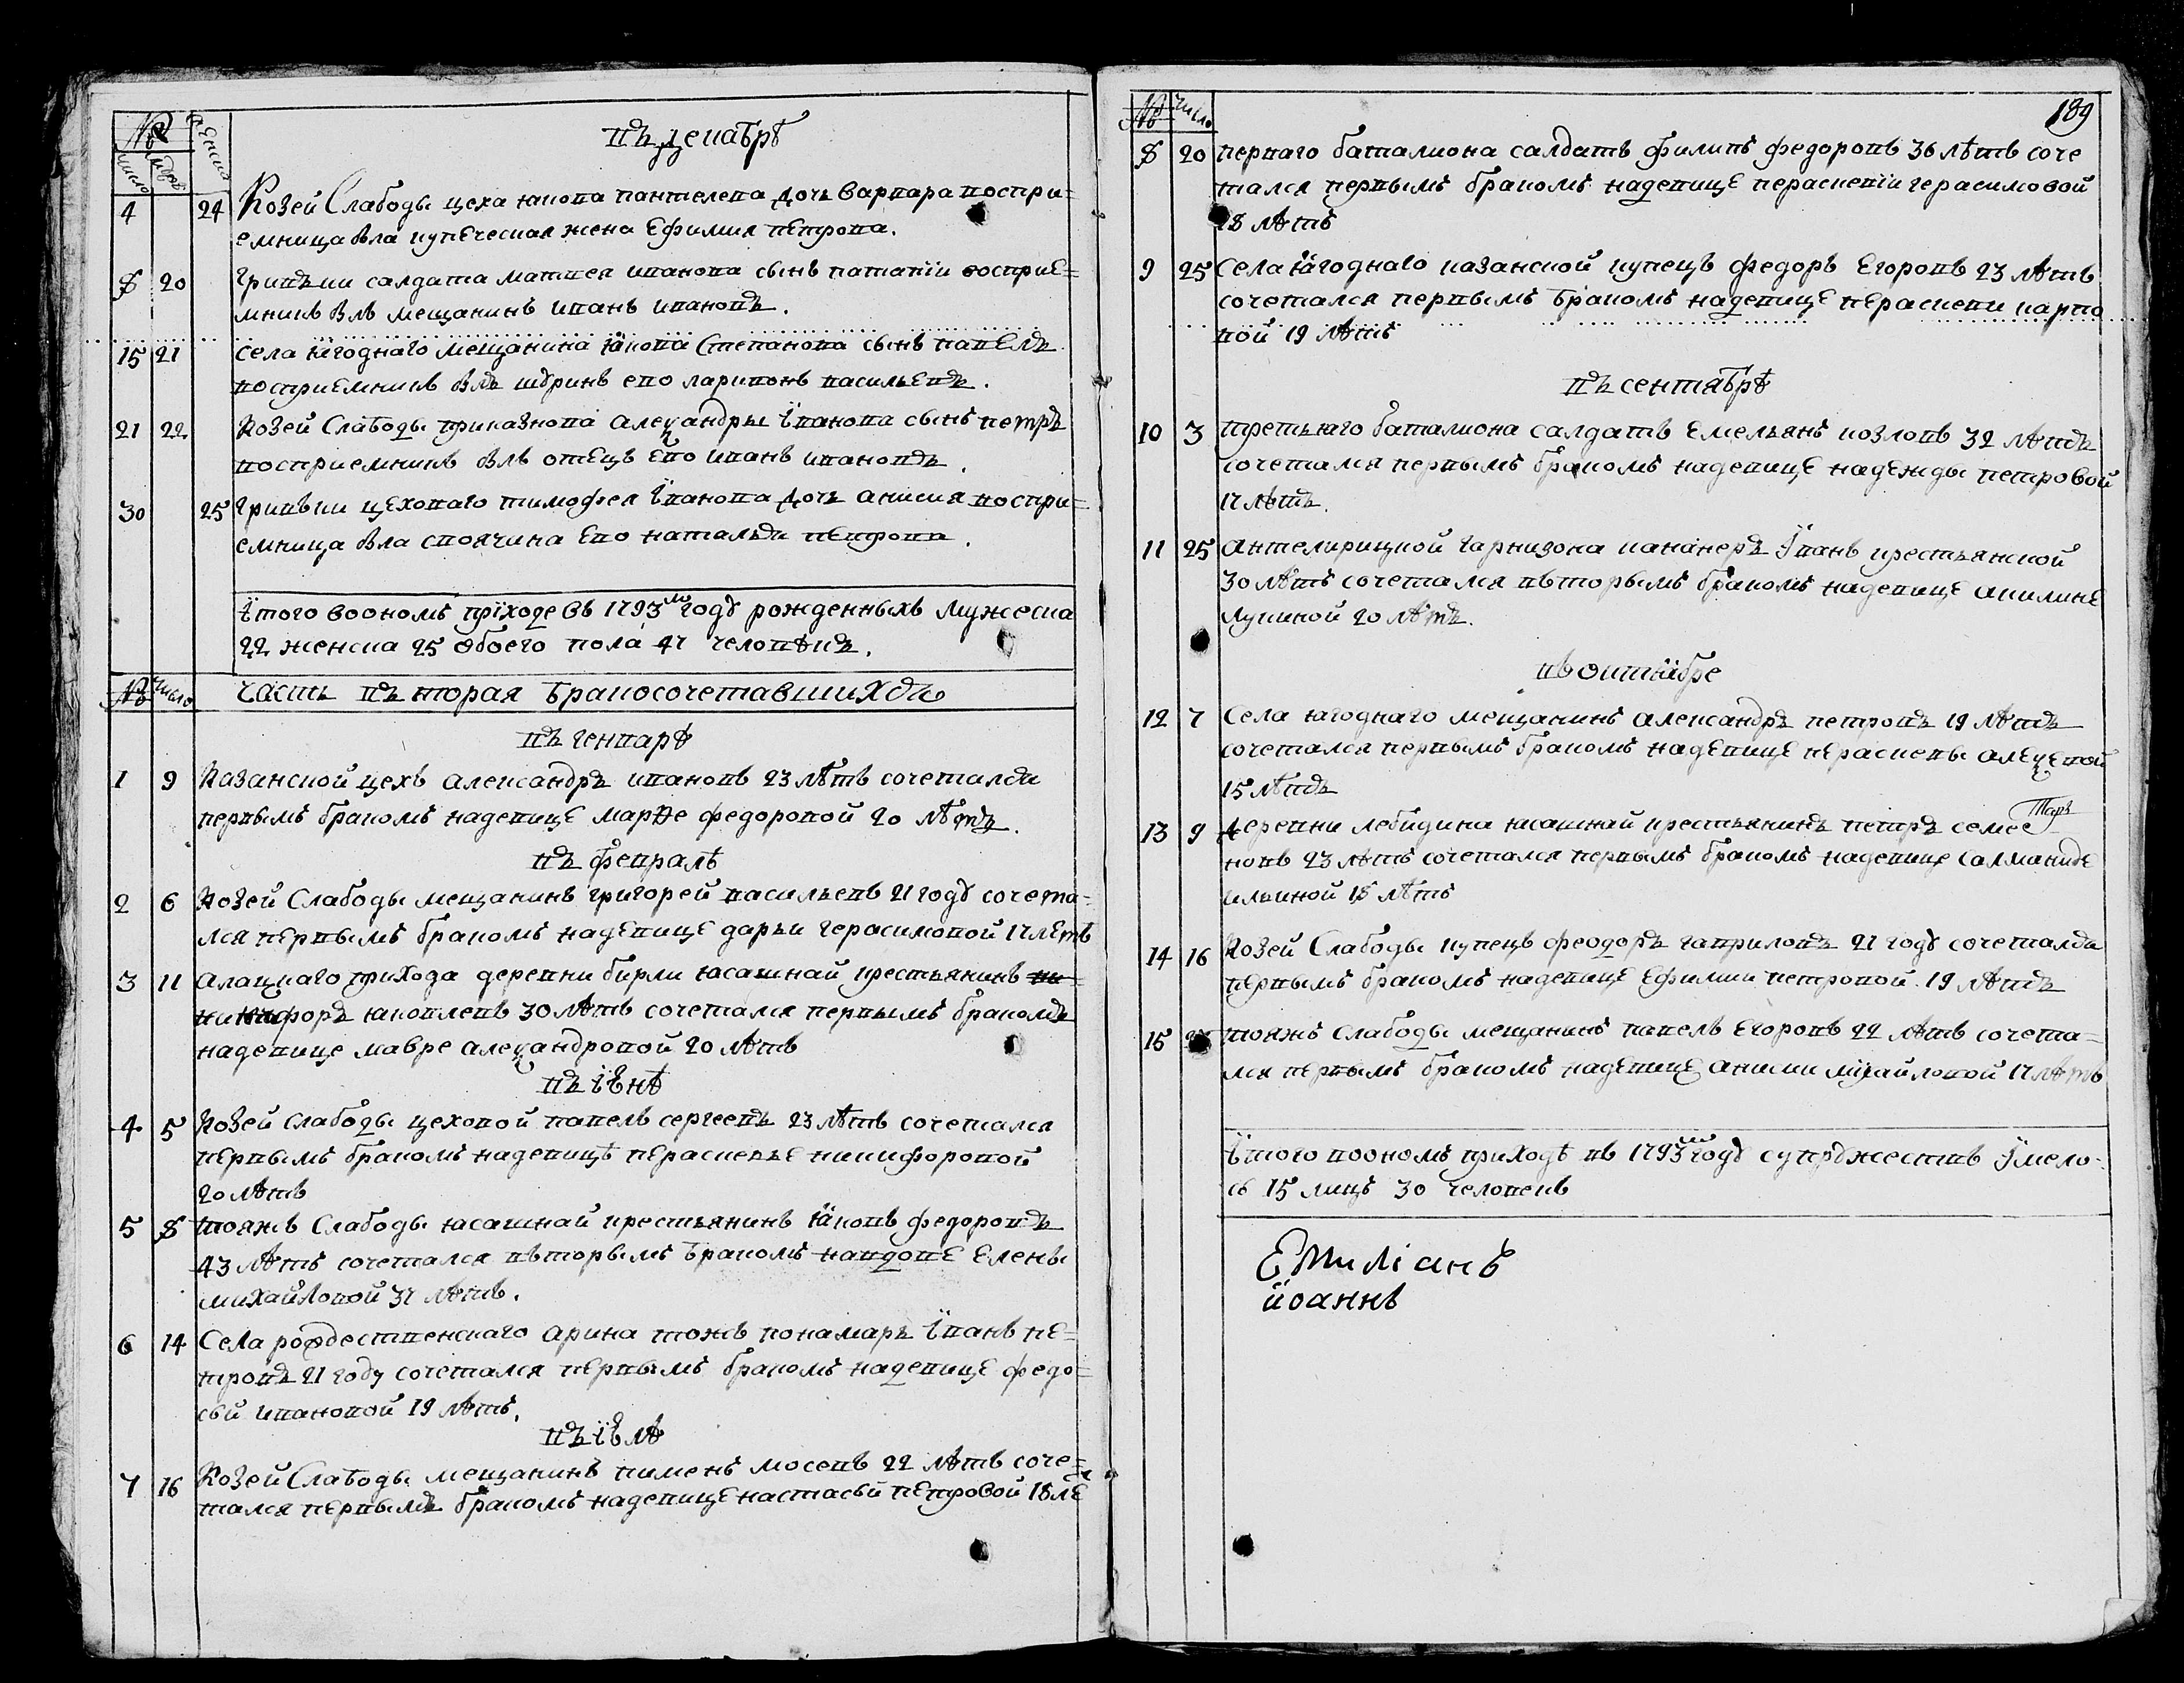 №
число
мужескъ
женска
въ декабрѣ
4 24 Козей Слабоды цеха якова пантелева дочь варвара воспри=
емница была купеческая жена Ефимия петрова.
8 20 Гривки салдата матвея иванова сынъ ватаній восприе=
мникъ былъ мещанинъ иванъ ивановъ.
15 21 села ягоднаго мещанина якова Степанова сынъ павелъ
восприемникъ былъ шуринъ ево ларивонъ васильевъ.
21 22 Козей Слабоды приказнова алеѯандры Їванова сынъ петръ
восприемникъ былъ отецъ Ево иванъ ивановъ.
30 25 Гривъки цеховаго тимофея Їванова дочь анисия воспри=
емница была споячина Ево наталья петрова.
Їтого воономъ приходе въ 1793мъ году рожденныхъ мужеска
22 женска 25 обоего пола 47 человѣкъ.
№ число часть въторая бракосочетавшихся
въ генварѣ
1 9 Казанской цехъ александръ ивановъ 23 лѣтъ сочетался
первымъ бракомъ надевице марѳе федоровой 20 лѣтъ.
въ февралѣ
2 6 Козей Слабоды мещанинъ григорей васильевъ 21 году сочета=
лся первымъ бракомъ надевице дарьи герасимовой 17 летъ
3 11 алацкаго прихода деревни бирли ясашнай крестьянинъ ни
никифоръ яковлевъ 30 лѣтъ сочетался первымъ бракомъ
надевице мавре алеѯандровой 20 лѣтъ
въ їюнѣ
4 5 Козей слабоды цеховой павелъ сергеевъ 23 лѣтъ сочетался
первымъ бракомъ надевицѣ перасковье никифоровой
20 лѣтъ
5 8 тояжъ Слабоды ясашнай крестьянинъ яковъ федоровъ
43 лѣтъ сочетался въторымъ бракомъ навдове Елены
михайловой 37 лѣтъ.
6 14 Села рождественскаго арина тожъ понамарь Їванъ пе=
тровъ 21 году сочетался первымъ бракомъ надевице федо=
сьи ивановой 19 лѣтъ.
въ їюлѣ
7 16 Козей Слабоды мещанинъ пименъ мосевъ 22 лѣтъ соче=
тался первымъ бракомъ надевице настасьи петровой 18 ле
189
№ число
8 20 перваго баталиона салдатъ филипъ федоровъ 36 лѣтъ соче
тался первымъ бракомъ надевице перасковїи герасимовой
18 лѣтъ
9 25 Села ягоднаго казанской купецъ федоръ Егоровъ 23 лѣтъ
сочетался первымъ бракомъ надевице перасковеи карпо
вой 19 лѣтъ
въ сентябрѣ
10 3 третьяго баталиона салдатъ Емельянъ козловъ 32 лѣтъ
сочетался первымъ бракомъ надевице надежды петровой
17 лѣтъ.
11 25 антелирицкой гарнизона кананеръ Їванъ крестьянской
30 лѣтъ сочетался въторымъ бракомъ надевице акилине
лукиной 20 лѣтъ.
въ октябре
12 7 Села ягоднаго мещанинъ александръ петровъ 19 лѣтъ
сочетался первымъ бракомъ надевице перасковы алеѯевой
15 лѣтъ
13 9 деревни лебидина ясашнай крестьянинъ петръ семе
новъ 23 лѣтъ сочетался первымъ бракомъ надевице салманидѣ
ильиной 18 лѣтъ
14 16 Козей Слабоды купецъ феодоръ гавриловъ 21 году сочетался
первымъ бракомъ надевице Ефимии петровой 19 лѣтъ
15 тояжъ слабоды мещанинъ павелъ Егоровъ 22 лѣтъ сочета=
лся первымъ бракомъ надевице анисии михайловой 17 лѣтъ
Їтого воономъ приходѣ въ 1793мъ году супружествъ Їмело=
сь 15 лицъ 30 человекъ
Емиліанъ
їоаннъ